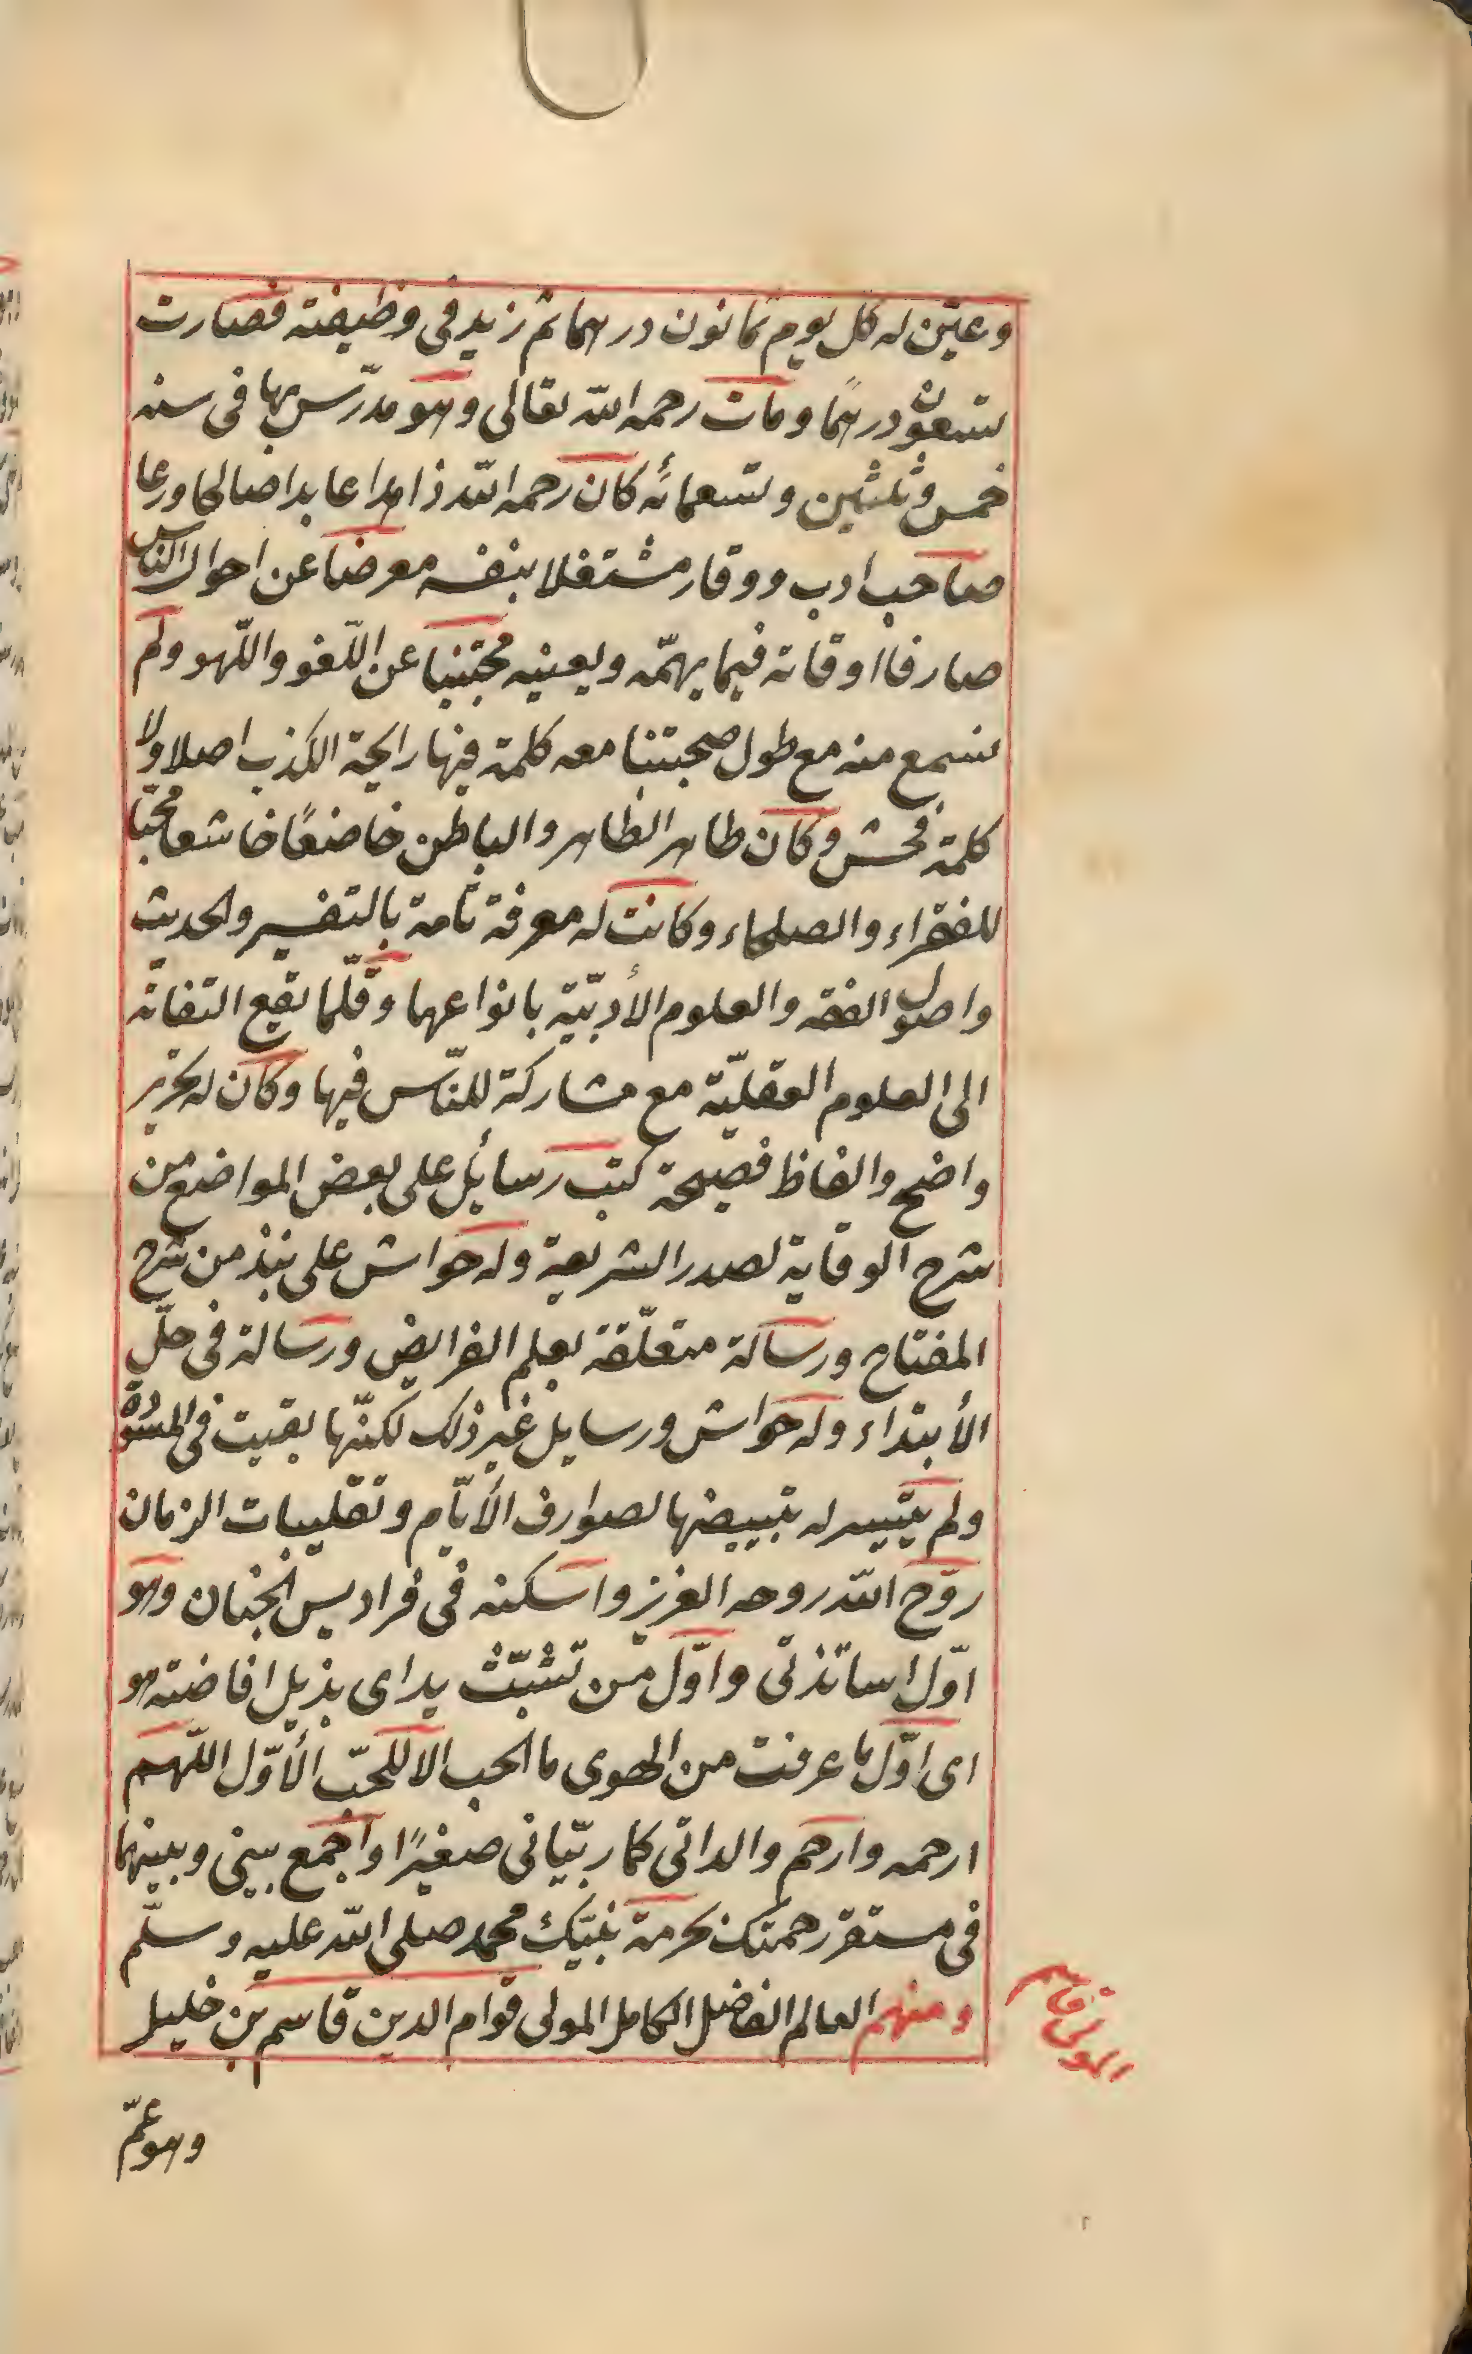 وعيّن له كل يوم ثمانون درهما ثم زيد فى وظيفته فصارت
تسعون درهمًا ومات رحمه الله تعالى وهو مدرّس بها فى سنه
خمس وثلثين وتسعمائه كان رحمه الله زاهدا عابدا صالحا ورعا
صاحب ادب ووقار مشتغلا بنفسه معرضا عن احوال الناس
صارفا اوقاته فيما يهمّه ويعنيه مجتنبا عن اللّغو واللّهو ولم
نسمع منه مع طول صحبتنا معه كلمة فيها رايحة الكذب اصلا ولا
كلمة فحش وكان طاهر الظاهر والباطن خاضعًا خاشعا محبّا
للفقراء والصلحاء وكانت له معرفة تامة بالتفسير والحديث
واصول الفقه والعلوم الأدبيّة بانواعها وقلّما يقع التفاته
الى العلوم العقليّة مع مشاركة للنّاس فيها وكان له تحرير
واضح والفاظ فصيحة كتب رسائل على بعض المواضع من
شرح الوقاية لصدر الشريعة وله حواش على نبذ من شرح
المفتاح ورسالة متعلّقة بعلم الفرايض ورسالة فى حلّ
الأبتداء وله حواش ورسايل غير ذلك لكنّها بقيت فى المسوّدة
ولم يتيسر له تبييضها لصوارف الأيّام وتقليبات الزمان
روّح الله روحه العزيز واسكنه فى فراديس الجنان وهو
اوّل اساتذتى واوّل من تشبّث يداى بذيل افاضته هو
اى اوّل ما عرفت من الهوى ما الحب الا للحبّ الأوّل اللّهم
ارحمه وارحم والداتى كما ربّيانى صغيرًا واجمع بينى وبينهما
فى مستقر رحمتك بحرمة نبيّك محمد صلى الله عليه وسلّم
ومنهم العالم الفاضل الكامل المولى قوام الدين قاسم بن خليل
المولى قاسم
وهو عمّ